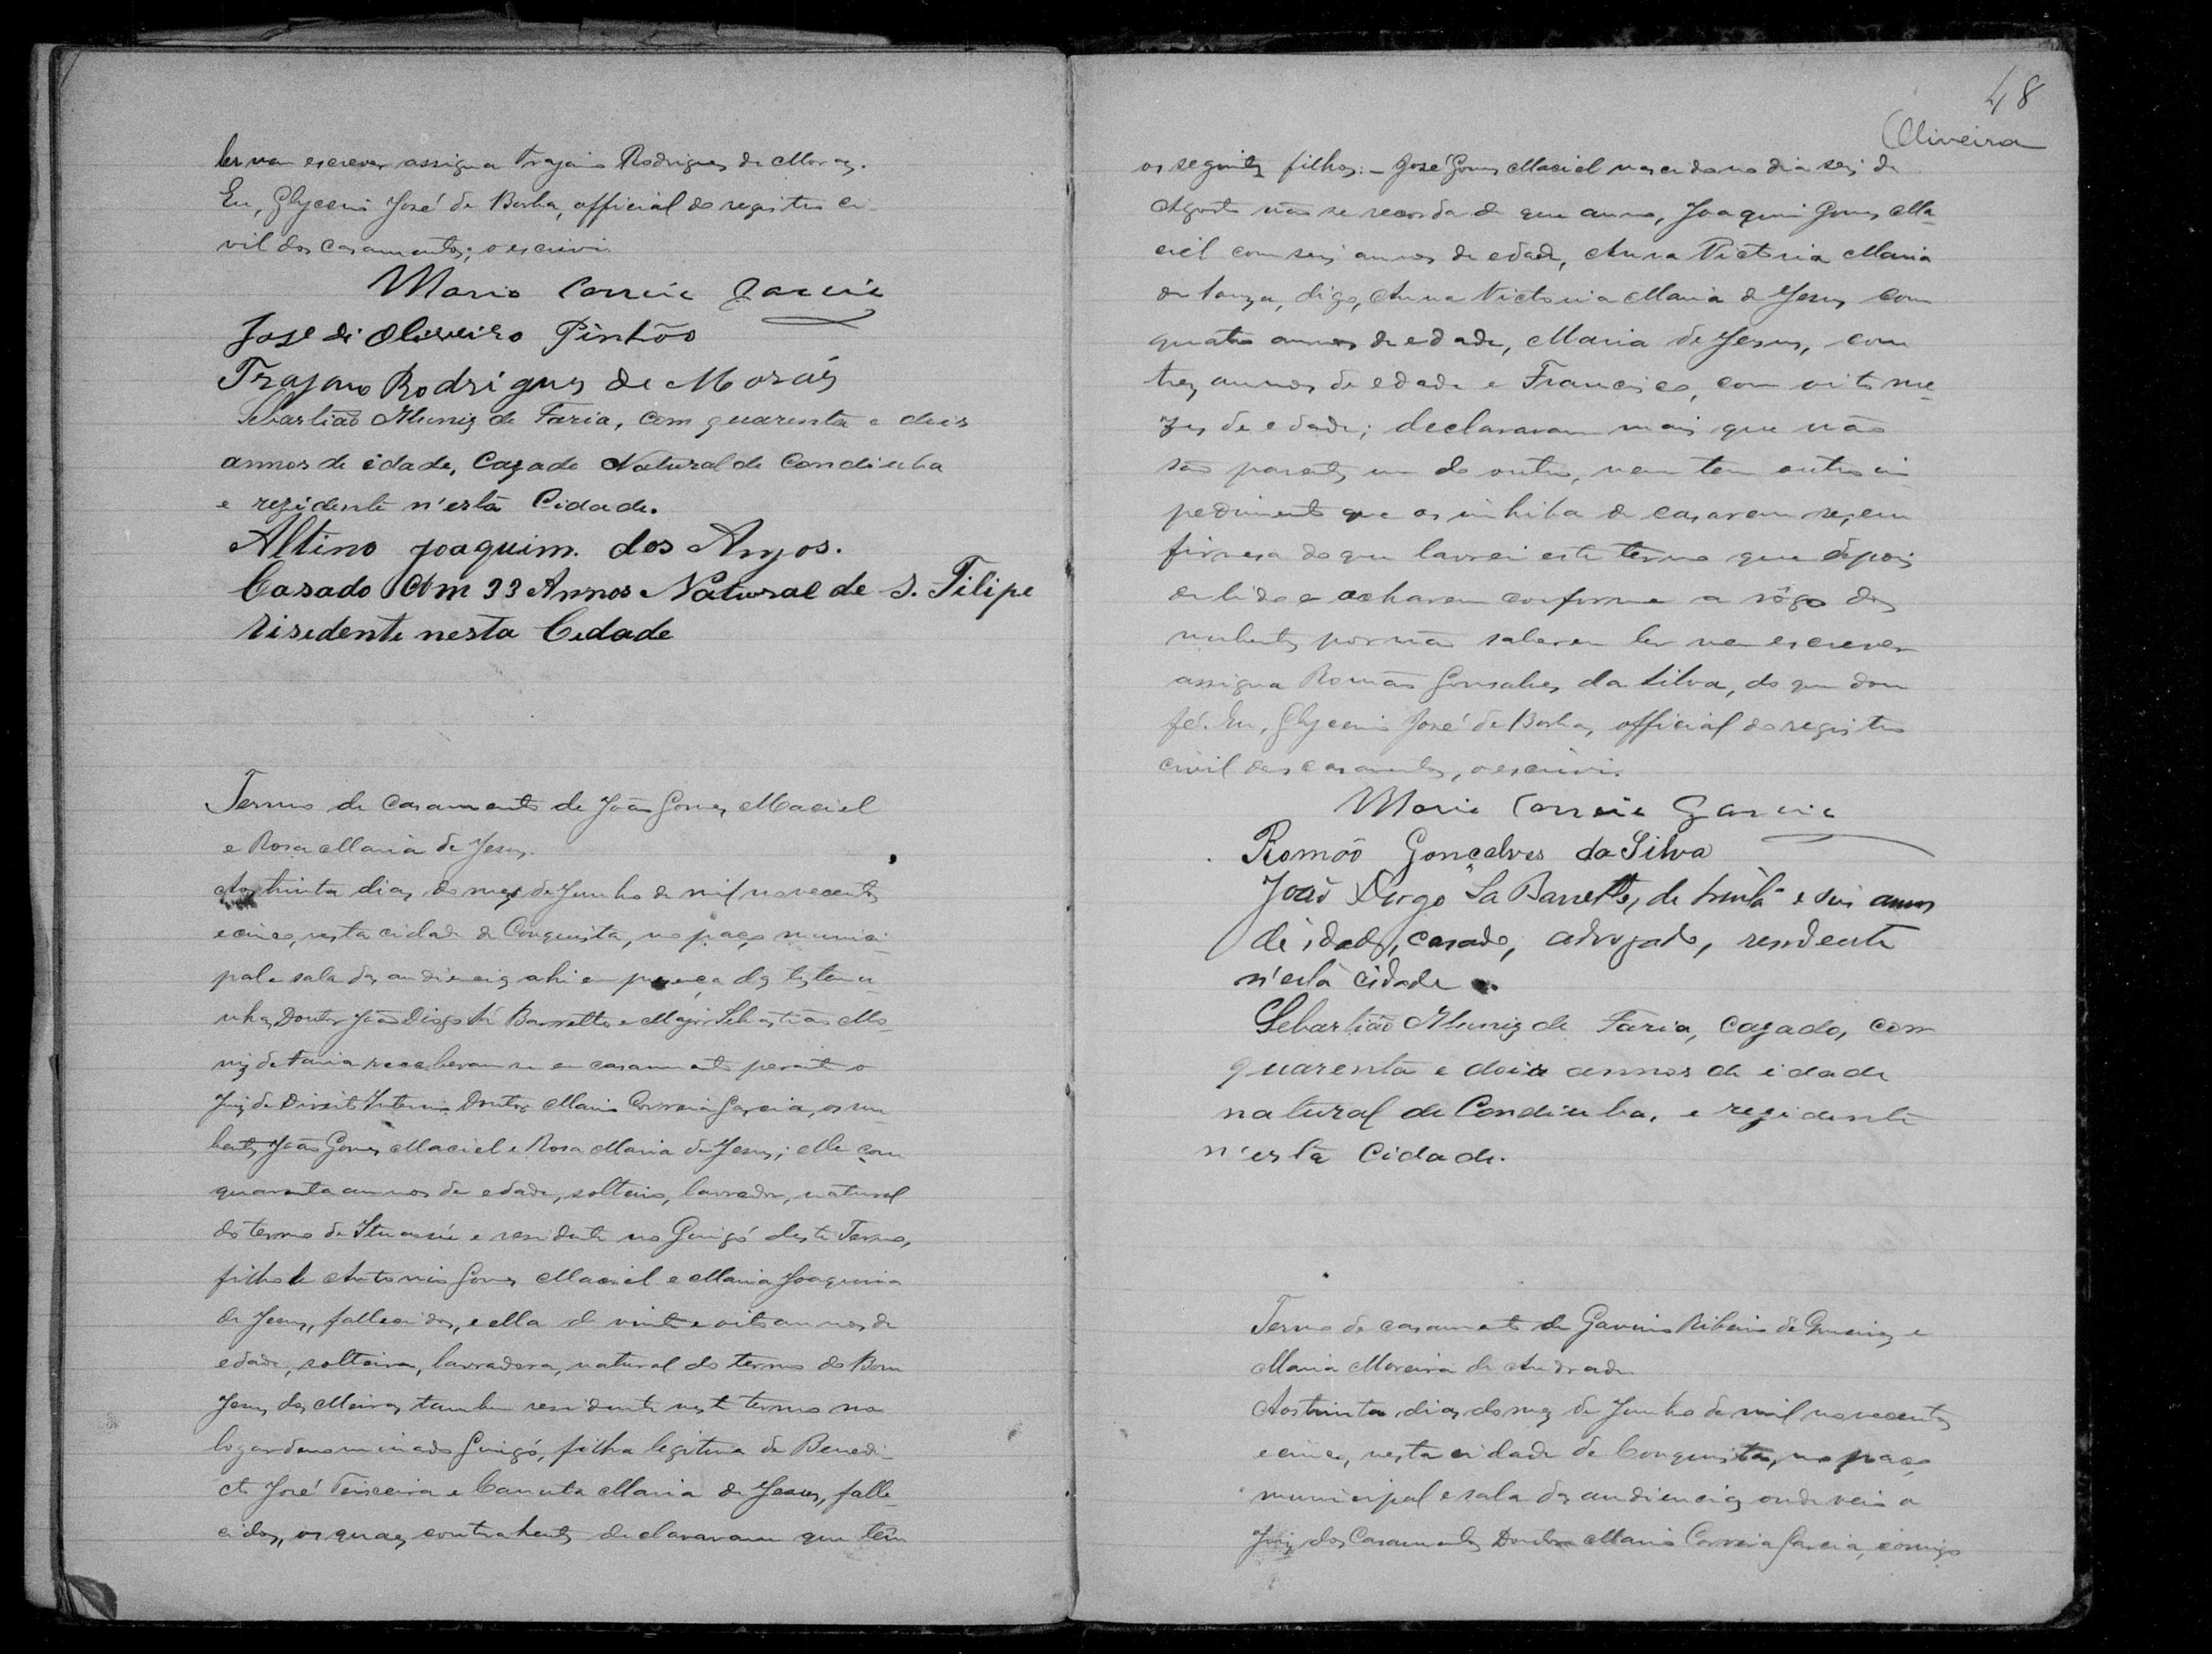 ler nem escrever assigna Trajano Rodrigues de Moraes.
Eu, Glycerio José de Borba, official do registro ci-
vil dos casamentos, o escrivi.
Mario Correia Garcia
José di Oliveiro Pinhõo
Trajano Rodrigues de Moraís
Sebastião Muniz de Faria, com quarenta e dois
annos de idade, Cazado Natural de Condiuba
e rezidente n'esta Cidade.
Altino Joaquim dos Anjos.
Casado com 33 Annos Natural de S. Filipe
risedente nesta Cedade
Termo de casamento de João Gomes Maciel
e Rosa Maria de Jesus.
Aos trinta dias do mez de Junho de mil novecentos
e cinco, nesta cidade de Conquista, no paço munici-
pal e sala das audiencias ahi em presença das testemu-
nhas, Doutor João Diogo Sá Barretto e Major Sebastião Mo-
niz de Faria receberam-se em casamento perante o
Juiz de Direito Interino Doutor Mario Correia Garcia, os nu-
bentes João Gomes Maciel e Rosa Maria de Jesus; elle com
quarenta annos de edade, solteiro, lavrador, natural
do termo de Ituassú e residente no Guigó deste Termo,
filho de Antonio Gomes Maciel e Maria Joaquina
de Jesus, fallecidos, e ella de vinte e oito annos de
edade, solteira, lavradora, natural do termo do Bom
Jesus dos Meiras tambem residente neste termo no
logar denominado Guigó, filha legitima de Benedi-
cto José Teixeira e Canuta Maria de Jesus, falle-
cidos, os quaes contrahentes declararam que têm
48
Oliveira
os seguintes filhos:- José Gomes Maciel nascido no dia seis de
Agosto não se recorda de que anno, Joaquim Gomes Ma-
ciel com seis annos de edade, Anna Victoria Maria
de Souza, digo, Anna Victoria Maria de Jesus com
quatro annos de edade, Maria de Jesus, com
trez annos de edade e Francisco, com oito me-
zes de edade; declararam mais que não
são parentes um do outro, nem tem outro im-
pedimento que os inhiba de casarem-se, em
firmesa do que lavrei este termo que depois
de lido e acharem conforme a rôgo dos
nubentes por não saberem ler nem escrever
assigna Romão Gonsalves da Silva, do que dou
fé. Eu, Glycerio José de Borba, official do registro
civil dos casamentos, o escrivi.
Mario Correia Garcia
Romão Gonçalves da Silva
João Diogo Sá Barretto, de trinta e seis annos
de idade, casado, advogado, residente
n'esta cidade.
Sebastião Muniz de Faria, cazado, com
quarenta e dois annos de idade
natural de Condiuba, e rezidente
n'esta Cidade.
Termo de casamento de Ribeiro de e
Maria Moreira de Andrade.
Aos trinta dias do mez de Junho de mil novecentos
e cinco, nesta cidade de Conquista, no paço
municipal e sala das audiencias onde veio o
Juiz dos Casamentos Doutor Mario Correia Garcia, comigo